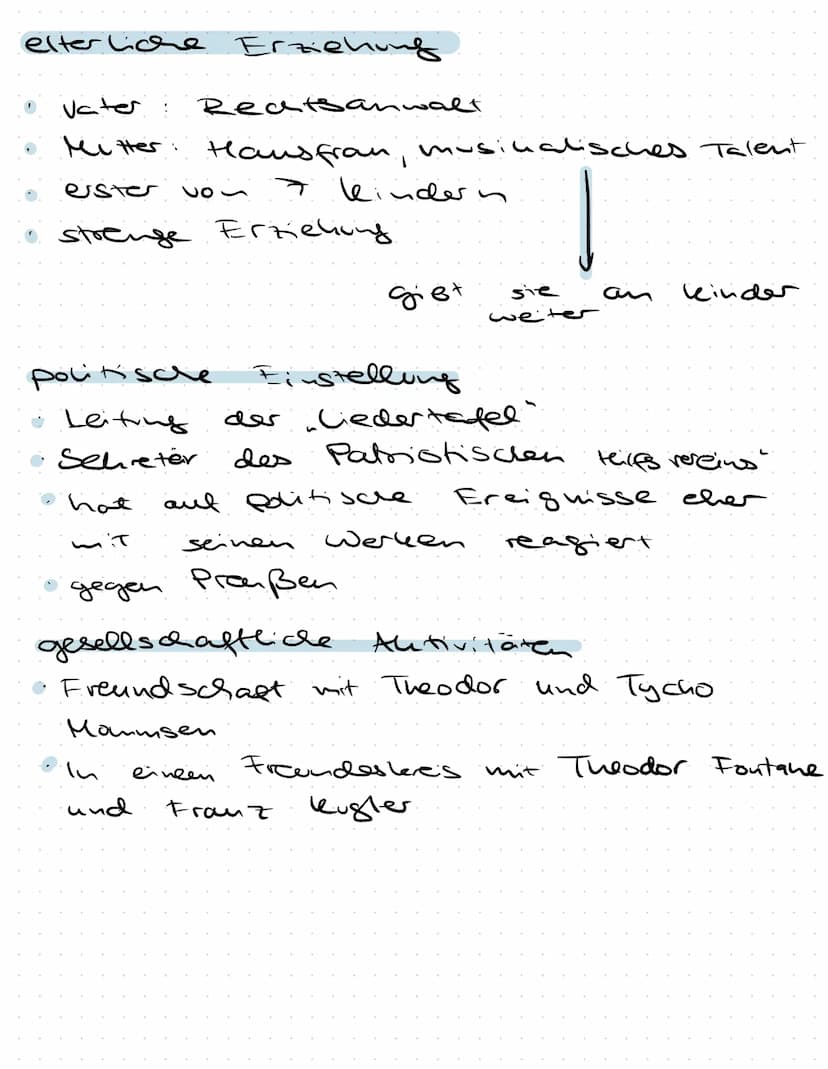 elterliche Erziehung
• Vater : Rechtsanwalt
• Mutter: Hausfrau, musikalisches Talent
• erster von 7 Kindern
• strenge Erziehung
gibt sie an Kinder
weiter
politische Einstellung
• Leitung der „Liedertafel“
• Sekretär des Patriotischen Hilfsvereins“
• hat auf politische Ereignisse eher
mit seinen Werken reagiert
• gegen Preußen
gesellschaftliche Aktivitäten
• Freundschaft mit Theodor und Tycho
Mommsen
• In einem Freundeskreis mit Theodor Fontane
und Franz Kugler